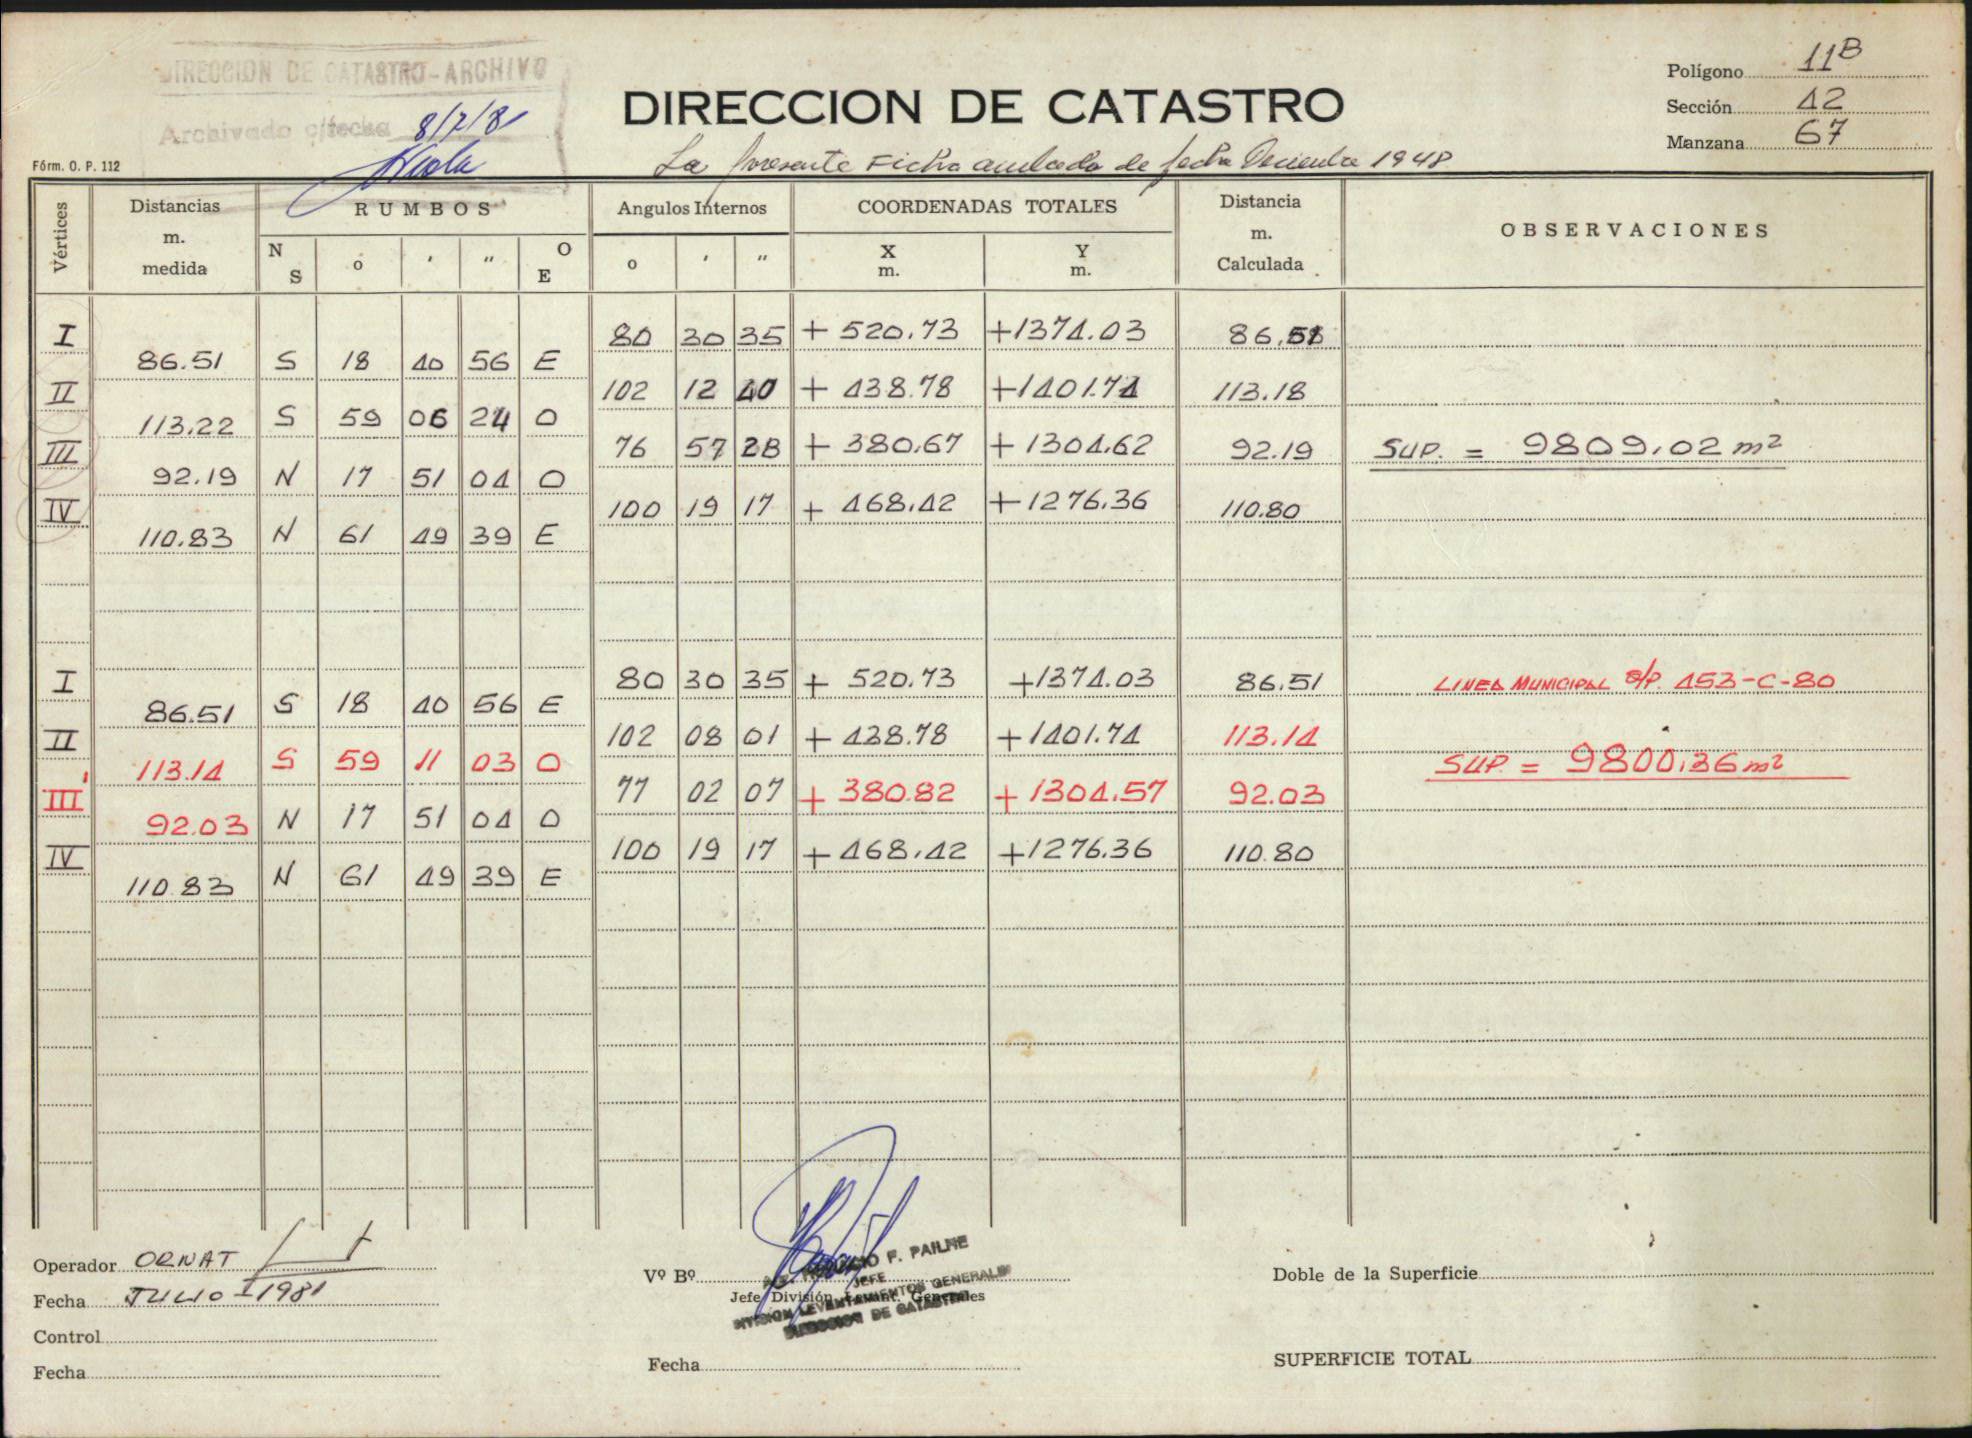 DIRECCION DE CATASTRO-ARCHIVO
Archivado c/fecha 8/7/81
Fórm. O. P. 112
DIRECCION DE CATASTRO
La presente Ficha anulada de fecha Diciembre 1948
Polígono 11B
Sección 42
Manzana 67
Vértices Distancias m. medida RUMBOS Angulos Internos COORDENADAS TOTALES Distancia m. Calculada OBSERVACIONES
N S o ' " O E o ' " X m. Y m.
I 80 30 35 + 520.73 +1374.03 86.51
86.51 S 18 40 56 E
II 102 12 40 + 438.78 +1401.74 113.18
113.22 S 59 06 24 O
III 76 57 28 + 380.67 + 1304.62 92.19 SUP. = 9809.02 m²
92.19 N 17 51 04 O
IV 100 19 17 + 468.42 +1276.36 110.80
110.83 N 61 49 39 E
I 80 30 35 + 520.73 +1374.03 86.51 LINEA MUNICIPAL S/P. 453-C-80
86.51 S 18 40 56 E
II 102 08 01 + 438.78 +1401.74 113.14
113.14 S 59 11 03 O SUP. = 9800.36 m²
III' 77 02 07 + 380.82 + 1304.57 92.03
92.03 N 17 51 04 O
IV 100 19 17 + 468.42 +1276.36 110.80
110.83 N 61 49 39 E
Operador ORNAT
Fecha JULIO 1981
Control
Fecha
Vº Bº
F. PAILHE
JEFE
Jefe División Levant. Generales
DIVISION LEVANTAMIENTOS GENERALES
DIRECCION DE CATASTRO
Fecha
Doble de la Superficie
SUPERFICIE TOTAL